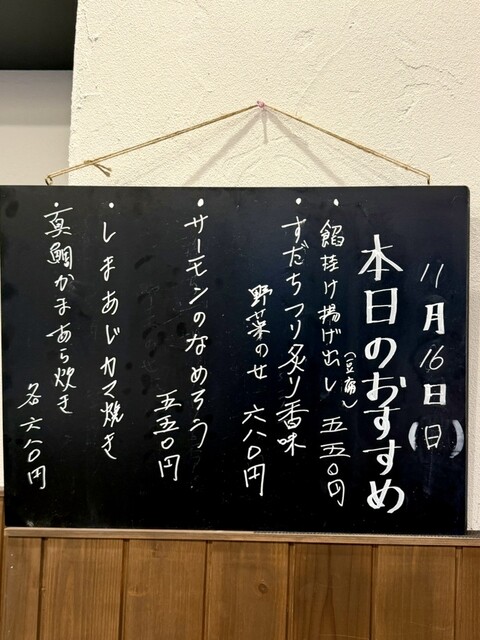 11月16日(日)
本日のおすすめ
・餡掛け揚げ出し(豆腐) 五五〇円
・すだちつり炙り香味
野菜のせ 六八〇円
・サーモンのなめろう
五五〇円
・しまあじカマ焼き
・真鯛かまあら炊き
各六八〇円